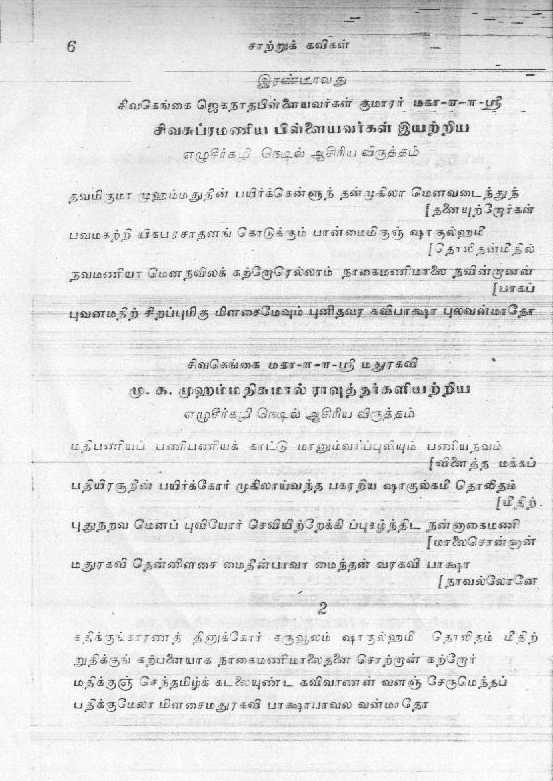 6
சாற்றுக் கவிகள்
இரண்டாவது
சிவகெங்கை ஜெகநாதபிள்ளையவர்கள் குமாரர் மகா-ள-ள-ஸ்ரீ
சிவசுப்ரமணிய பிள்ளையவர்கள் இயற்றிய
எழுசீர்கழி நெடில் ஆசிரிய விருத்தம்
தவமிகுமா முஹம்மதுநின் பயிர்க்கென்ளுந் தன்முகிலா மெனவடைந்துத்
[தனையுற்றோர்கள்
பவமகற்றி யிகபரசாதனங் கொடுக்கும் பான்மைமிகுஞ் ஷாகுல்ஹமீ
[தொலிதன்மீதில்
நவமணியா மெனநவிலக் கற்றோரெல்லாம் நாகைமணிமாலை நவின்றனன்
[பாகப்
புவனமதிற் சிறப்புமிகு மிளசைமேவும் புனிதவர கவிபாக்ஷா புலவன்மாதோ
சிவகெங்கை மகா-ள-ள-ஸ்ரீ மதுரகவி
மு. க. முஹம்மதிசுமால் ராவுத்தர்களியற்றிய
எழுசீர்கழி நெடில் ஆசிரிய விருத்தம்
மதிபணியப் பணிபணியக் காட்டு மானும்வரிப்புலியும் பணியநவம்
[விளைத்த மக்கப்
பதியிரசூதீன் பயிர்க்கோர் முகிலாய்வந்த பகரறிய ஷாகுல்கமீ தொலிதம்
[மீதிற்
புதுநறவ மெனப் புவியோர் செவியிற்றேக்கி ப்புகழ்ந்திட நன்னாகைமணி
[மாலைசொன்னான்
மதுரகவி தென்னிளசை மைதீன்பாவா மைந்தன் வரகவி பாக்ஷா
[நாவல்லோனே
2
கதிக்குங்காரணத் தினுக்கோர் கருவூலம் ஷாகுல்ஹமீ தொலிதம் மீதிற்
றுதிக்குங் கற்பனையாக நாகைமணிமாலைதனை சொற்றான் கற்றோர்
மதிக்குஞ் செந்தமிழ்க் கடலையுண்ட கவிவாணன் வளஞ் சேருமெந்தப்
பதிக்குமேலா மிளசைமதுரகவி பாக்ஷாபாவல வன்மாதோ